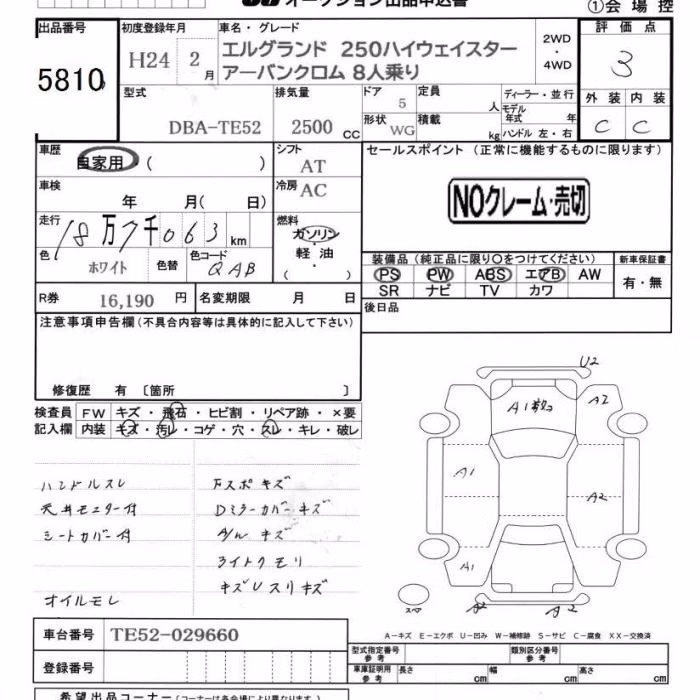 オークション出品申込書
①会場控
出品番号
5810
初度登録年月
H24 2月
車名・グレード
エルグランド 250ハイウェイスター
アーバンクロム 8人乗り
2WD
・
4WD
評価点
3
外装 内装
C C
型式
DBA-TE52
排気量
2500 CC
ドア 5
形状 WG
定員 人
積載 kg
ディーラー・並行
モデル年式 年
ハンドル 左・右
車歴
自家用 ( )
シフト
AT
セールスポイント (正常に機能するものに限ります)
NOクレーム・売切
車検
年 月( 日)
冷房
AC
走行
18万7千063 km
燃料
ガソリン
・
軽油
( )
色
ホワイト
色替
色コード
QAB
装備品 (純正品に限り○をつけてください)
PS PW ABS エアB AW
SR ナビ TV カワ
新車保証書
有・無
R券 16,190 円
名変期限 月 日
後日品
注意事項申告欄 (不具合内容等は具体的に記入して下さい)
修復歴 有 〔箇所 〕
検査員記入欄
FW キズ・飛石・ヒビ割・リペア跡・×要
内装 キズ・汚レ・コゲ・穴・スレ・キレ・破レ
ハンドルスレ
天井モニター付
シートカバー付
オイルモレ
Fスポキズ
Dミラーカバーキズ
A/Wキズ
ライトクモリ
キズUスリキズ
U2
A1
A2
A1
A2
A1
A2
A2
スペア
A-キズ E-エクボ U-凹み W-補修跡 S-サビ C-腐食 XX-交換済
車台番号 TE52-029660
登録番号
型式指定番号
参考
類別区分番号
参考
車庫証明用
参考
長さ cm
幅 cm
高さ cm
希望出品コーナー (コーナーは各会場により異なります。)